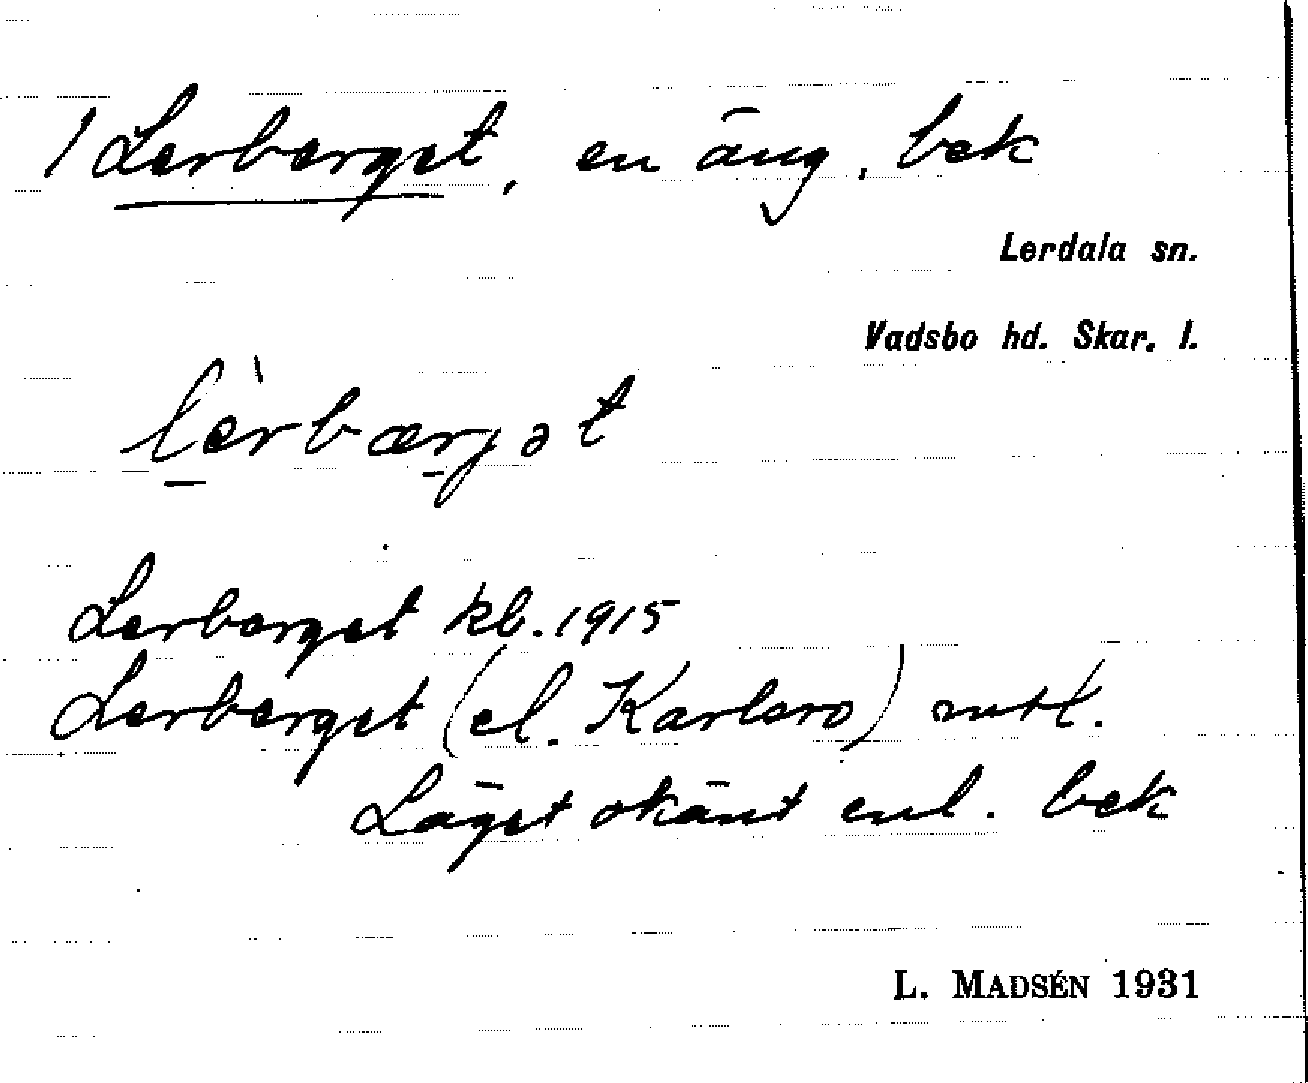 1 Lerberget, en äng, bek
Lerdala sn.
Vadsbo hd. Skar. l.
lèrbærjət
Lerberget kb. 1915
Lerberget (el. Karlsro) mtl.
Läget okänt enl. bek
L. MADSÉN 1931